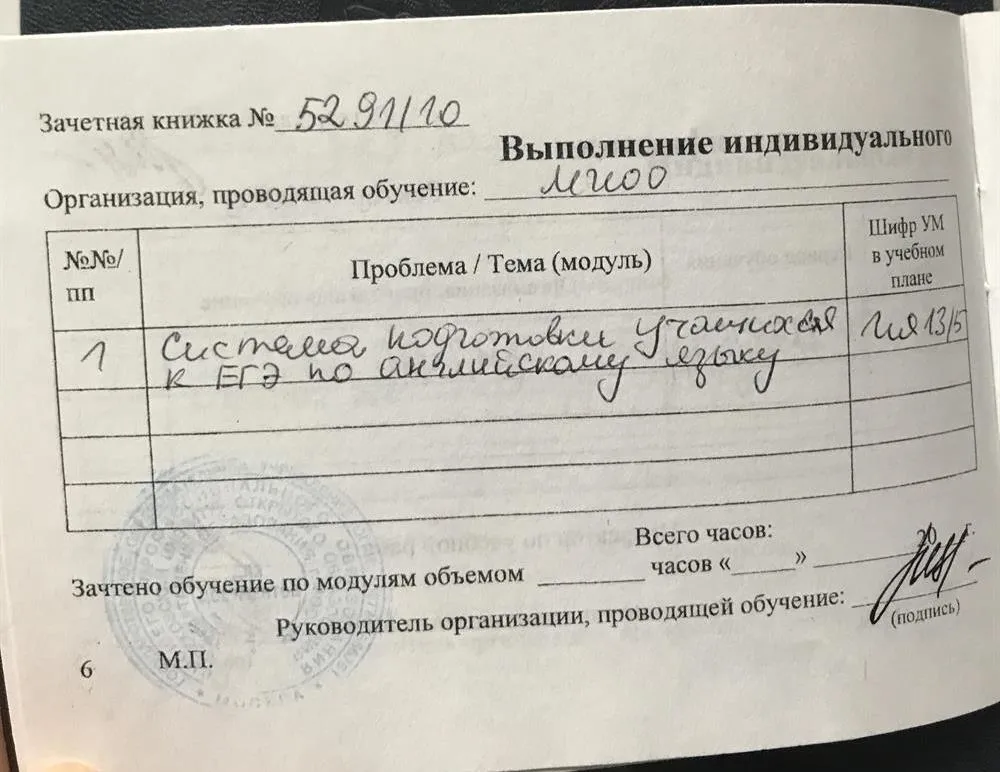 Зачетная книжка № 5291/10
Выполнение индивидуального
Организация, проводящая обучение: МИОО
№№/пп
Проблема / Тема (модуль)
Шифр УМ
в учебном
плане
1
Система подготовки учащихся
к ЕГЭ по английскому языку
ИЯ 13/5
Всего часов:
Зачтено обучение по модулям объемом ________ часов «_____» ________ 20 г.
Руководитель организации, проводящей обучение:
(подпись)
М.П.
6